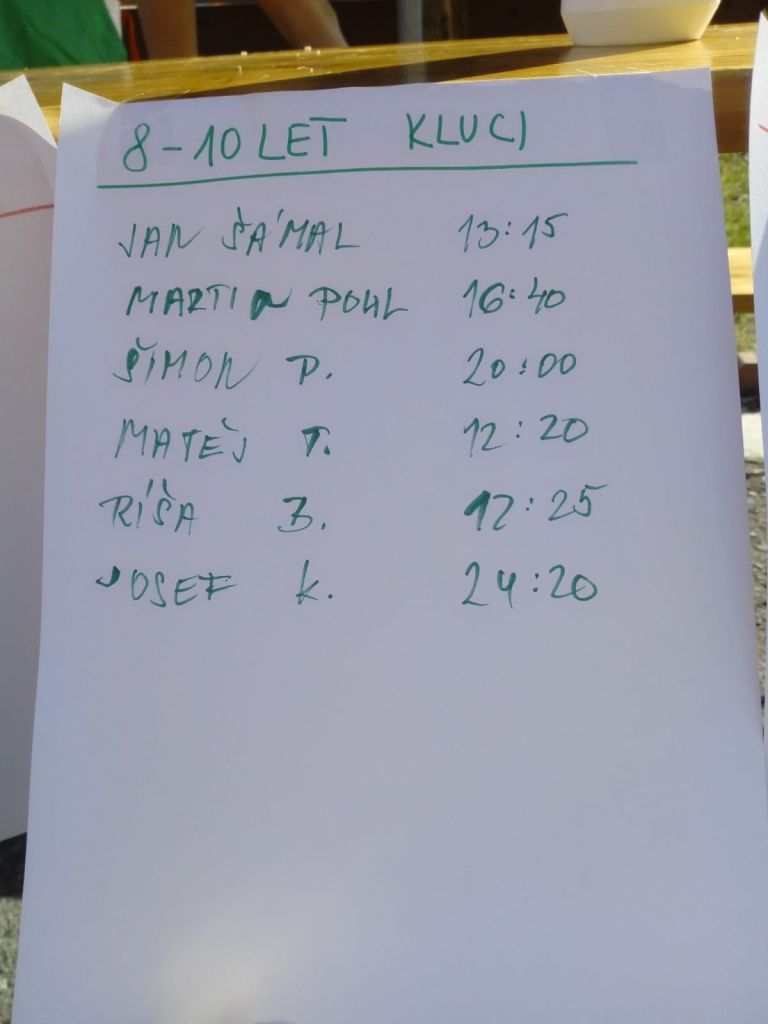 8-10 LET KLUCI
JAN ŠÁMAL 13:15
MARTIN POHL 16:40
ŠIMON P. 20:00
MATĚJ T. 12:20
RÍŠA B. 12:25
JOSEF K. 24:20